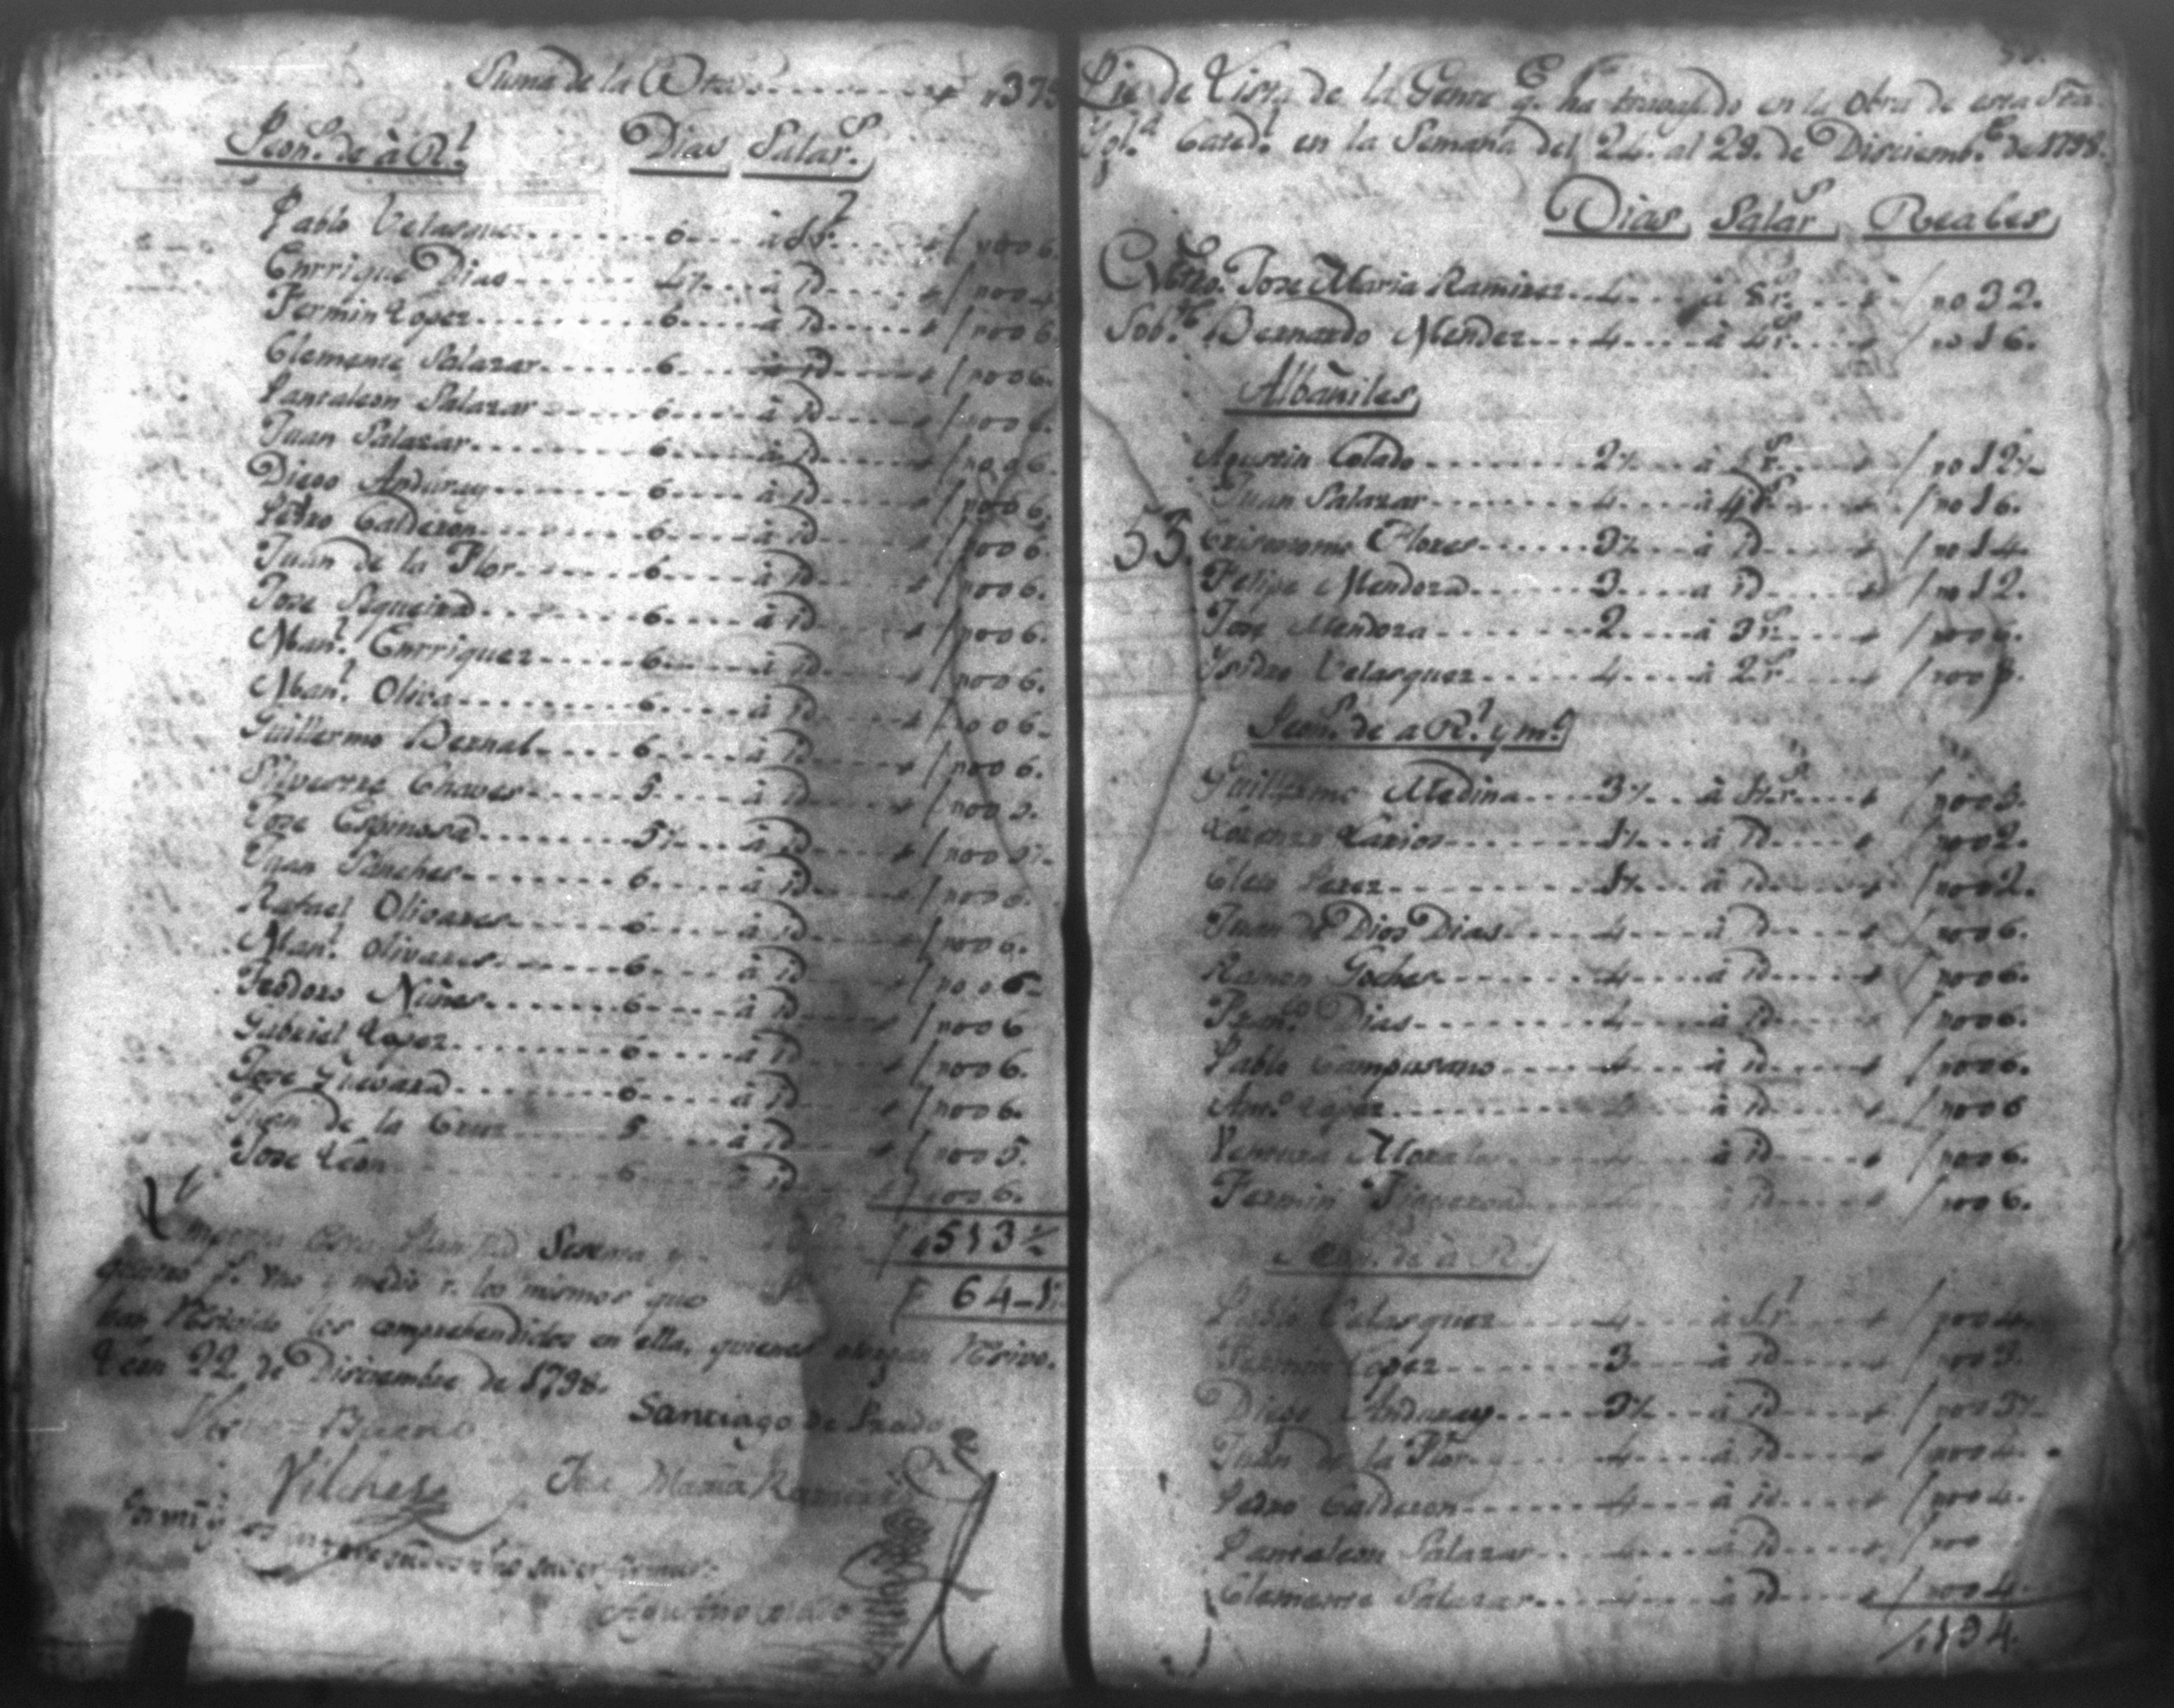 Suma de la Otra 375
Peon.s de à R.l Dias Salar.s
Pablo Velasquez 6 à 1 r.l /0006.
Enrrique Dias 4½ à id
Fermin Lopez 6 à id /0006
Clemente Salazar 6 à id /0006.
Pantaleon Salazar 6 à id /0006.
Juan Salazar 6 à id /0006.
Diego Anduray 6 à id /0006.
Pedro Calderon 6 à id /0006.
Juan de la Flor 6 à id /0006.
Jose Siqueira 6 à id /0006.
Man.l Enrriquez 6 à id /0006.
Man.l Oliva 6 à id /0006.
Guillermo Bernal 6 à id /0006.
Silvestre Chaves 5 à id /0005.
Jose Espinosa 5½ à id /0005½
Juan Sanches 6 à id /0006.
Rafael Olivares 6 à id /0006.
Man.l Olivares 6 à id /0006
Teodoro Nuñes 6 à id /0006
Gabriel Lopez 6 à id /0006.
Jose Guevara 6 à id /0006.
Juan de la Cruz 5 à id /0005.
Jose Leon 6 à id /0006.
/0513½
Importa esta Sesenta y
64-1½
quatro p.s uno y medio r.s los mismos que
han Resivido los comprehendidos en ella, quienes otorgan Resivo.
Leon 22. de Disciembre de 1798.
Santiago de Prado
Vilches Jose Maria Ramirez
Por mi y los que no saver firmar
Agustin Colado
Lis de Lista de la Gente q.e ha travajado en la obra de esta Sta
Igl.a Cated.l en la Semana del 24. al 29. de Disciemb.e de 1798.
Dias Salar.s Reales
Mtro. Jose Maria Ramirez 4 à 8 r.s /0032.
Sob.te Bernardo Mendez 4 à 4 r.s /0016.
Albañiles
Agustin Colado 2½ à 5 r.s /0012½
Juan Salazar 4 à 4 r.s /0016.
53. Crisostomo Flores 3½ à id /0014.
Felipe Mendoza 3 à id /0012.
Jose Mendoza 2 à 3 r.s /0006.
Isidro Velasquez 4 à 2 r.s /0008.
Peon.s de a R.l y m.o
Guillermo Medina 3½ à 1½ r.s /0005.
Lorenzo Larios 1½ à id /0002.
Cleto Perez 1½ à id /0002.
Juan de Dios Dias 4 à id /0006.
Ramon Goches 4 à id /0006.
Fran.co Dias 4 à id /0006.
Pablo Campusano 4 à id /0006.
Ant.o Lopez 4 à id /0006
Ventura Morales 4 à id /0006.
Fermin Figueroa 4 à id /0006.
Peon.s de à R.l
Pablo Velasquez 4 à 1 r.l /0004.
Fermin Lopez 3 à id /0003.
Diego Anduray 3½ à id /0003½
Juan de la Flor 4 à id /0004.
Pedro Calderon 4 à id /0004.
Pantaleon Salazar 4 à id /000
Clemente Salazar 4 à id /0004.
/0194.